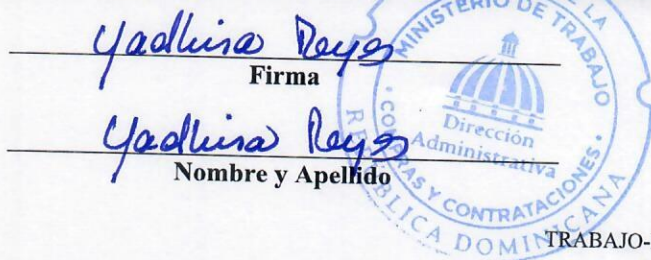 Yadhisa Reyes
Firma
Yadhisa Reyes
Nombre y Apellido
MINISTERIO DE TRABAJO
Dirección
Administrativa
COMPRAS Y CONTRATACIONES
DE LA
REPÚBLICA DOMINICANA
TRABAJO-